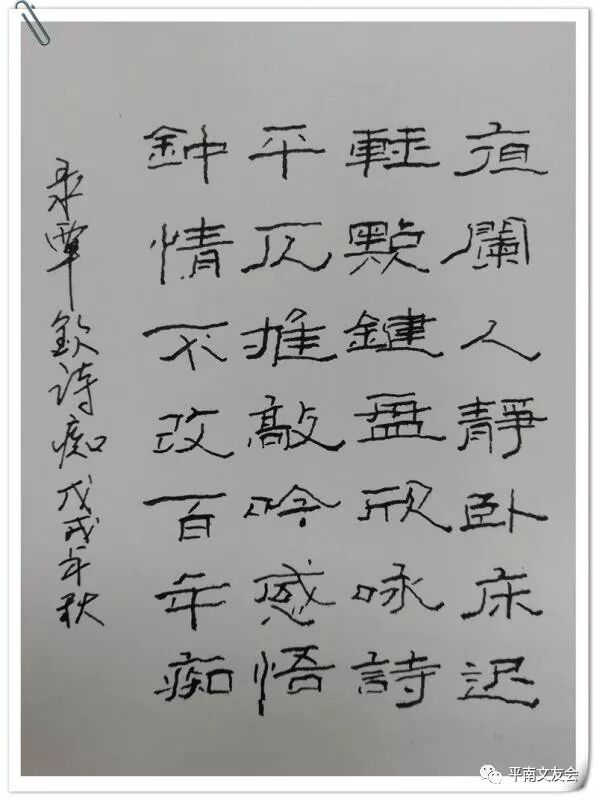 夜闌人靜卧床迟
輕點鍵盘欣咏詩
平仄推敲吟感悟
鈡情不改百年痴
录覃钦诗痴戊戌年秋
平南文友会